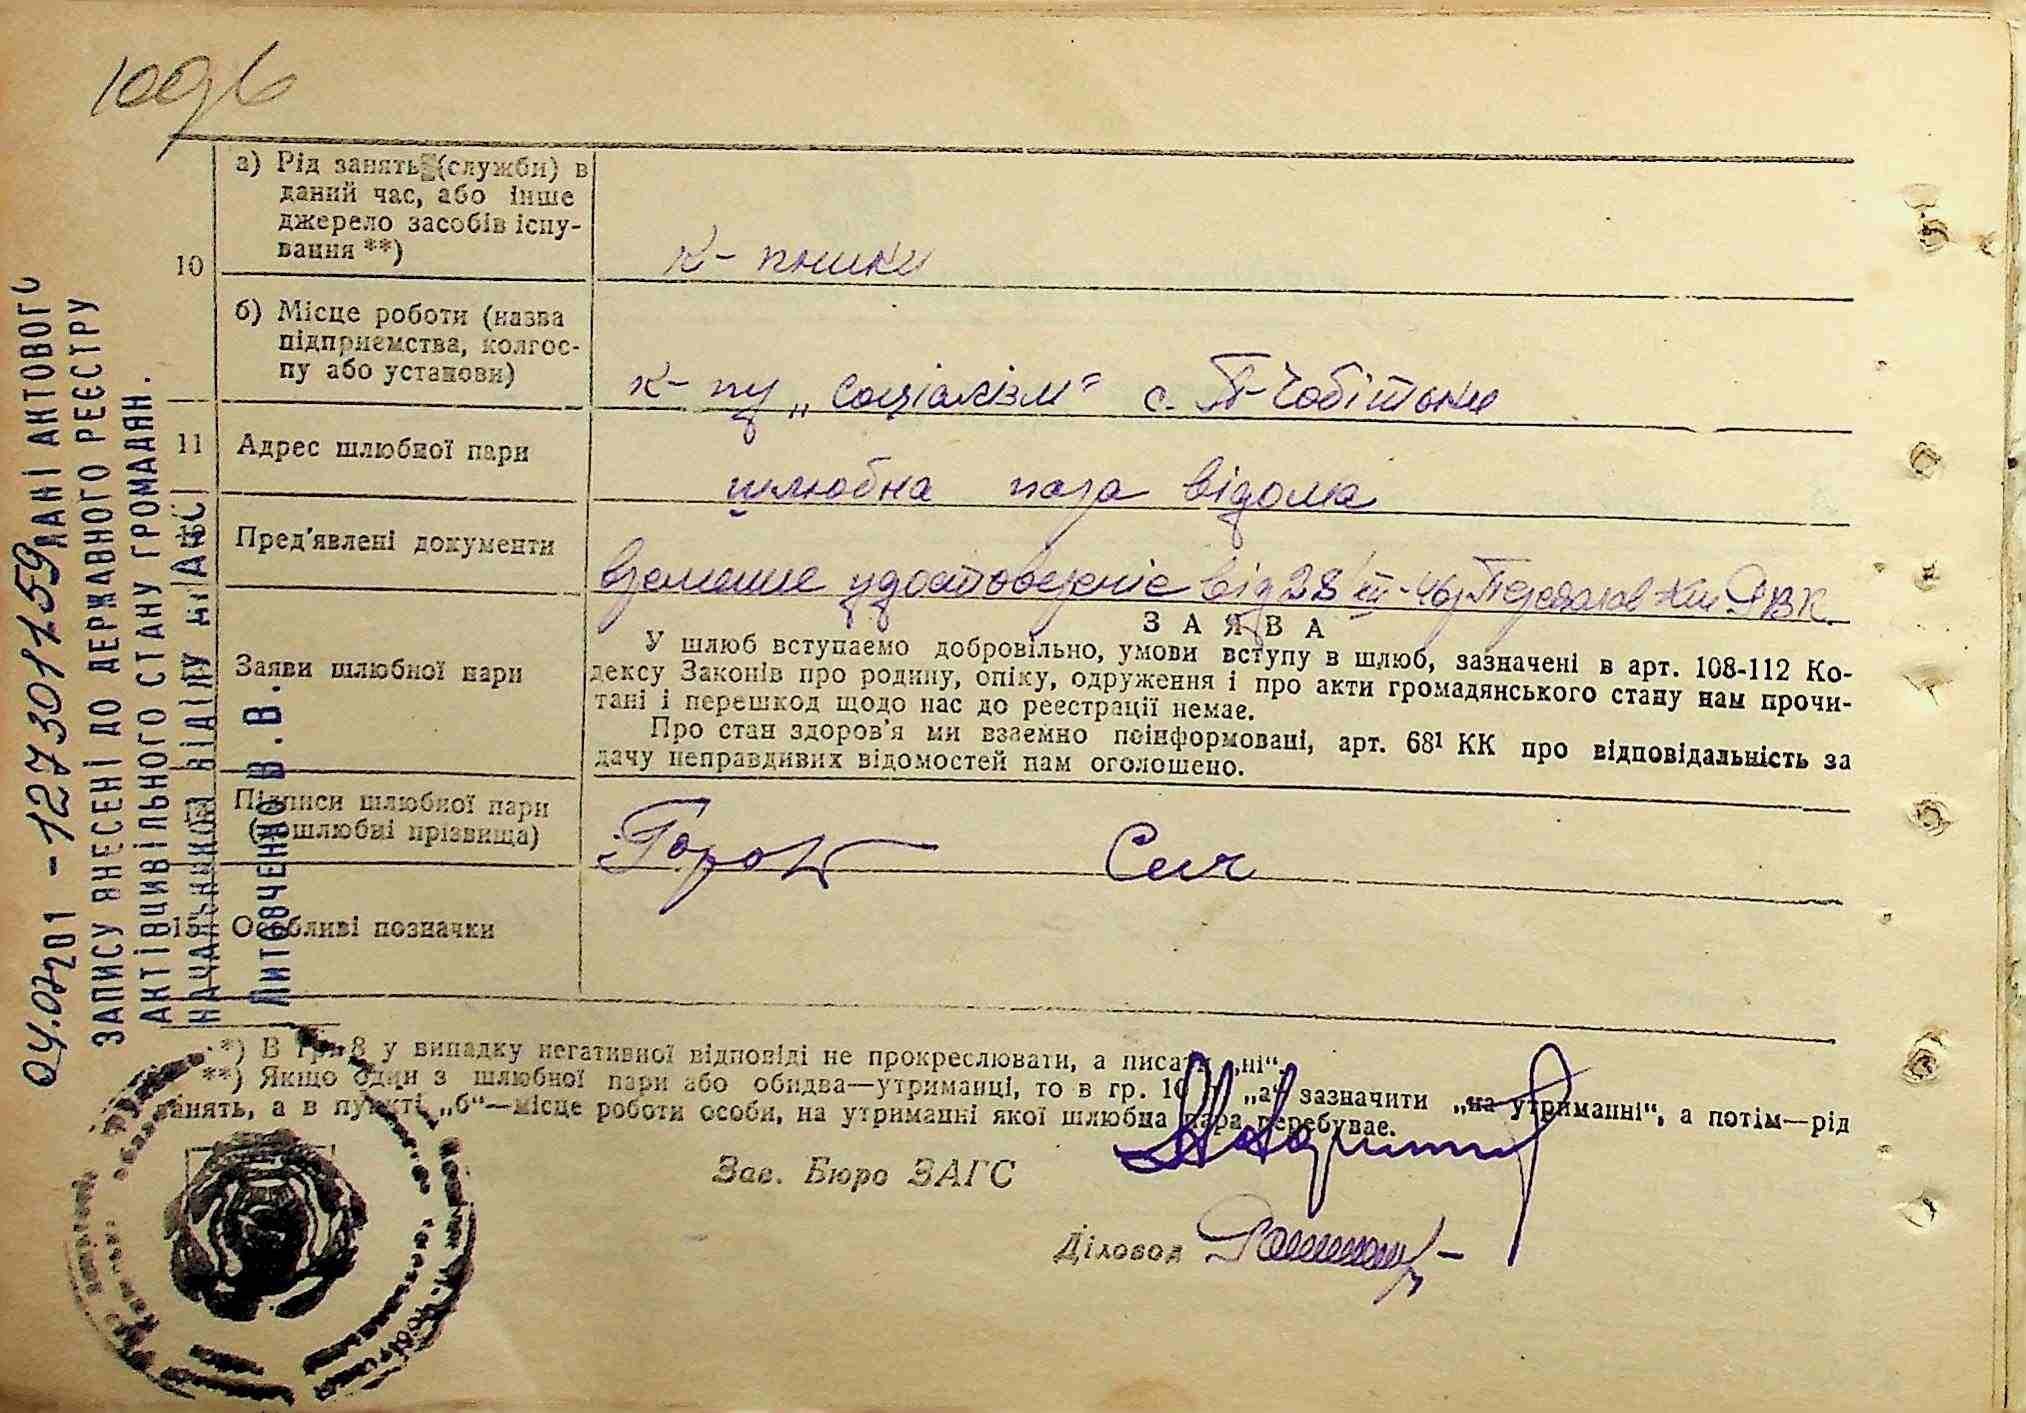 100
а) Рід занять (служби) в
даний час, або інше
джерело засобів існу-
вання **)
10
к-пники
б) Місце роботи (назва
підприємства, колгос-
пу або установи)
к-пу „Соціалізм“ с. П-Чобітоки
11
Адрес шлюбної пари
шлюбна пара відома
Пред'явлені документи
від 28/III-46р
З А Я В А
Заяви шлюбної пари
У шлюб вступаемо добровільно, умови вступу в шлюб, зазначені в арт. 108-112 Ко-
дексу Законів про родину, опіку, одруження і про акти громадянського стану нам прочи-
тані і перешкод щодо нас до реєстрації немає.
Про стан здоров'я ми взаємно поінформовані, арт. 68¹ КК про відповідальність за
дачу неправдивих відомостей нам оголошено.
Підписи шлюбної пари
(дошлюбні прізвища)
15
Особливі позначки
*) В гр. 8 у випадку негативної відповіді не прокреслювати, а писати „ні“.
**) Якщо один з шлюбної пари або обидва—утриманці, то в гр. 10 „а“ зазначити „на утриманні“, а потім—рід
занять, а в пункті „б“—місце роботи особи, на утриманні якої шлюбна пара перебуває.
Зав. Бюро ЗАГС
Діловод
1273011259 ДАНІ АКТОВОГО
ЗАПИСУ ВНЕСЕНІ ДО ДЕРЖАВНОГО РЕЄСТРУ
АКТІВ ЦИВІЛЬНОГО СТАНУ ГРОМАДЯН.
НАЧАЛЬНИКОМ ВІДДІЛУ
Литовченко В.В.